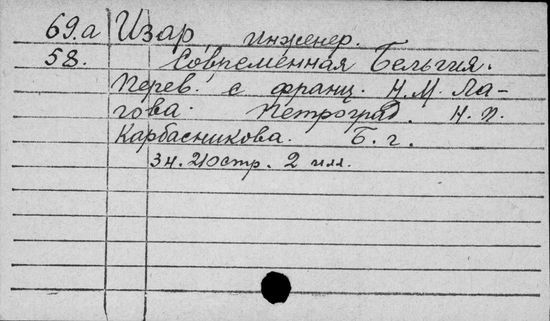 69.а Изар, инженер.
58. Современная Бельгия.
Перев. с франц. Н.М. Ла-
гова. Петроград. Н.П.
Карбасникова. Б.г.
3н. 210стр. 2 илл.